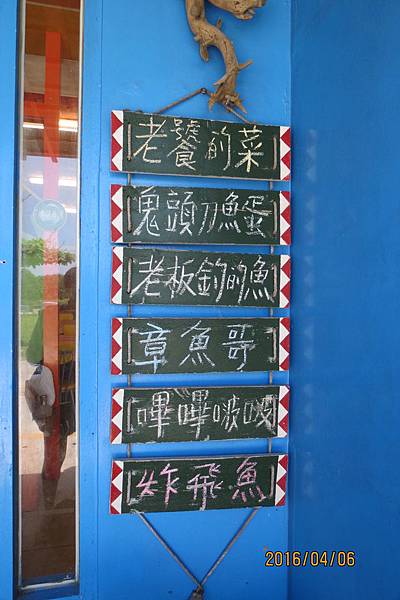 老饕的菜
鬼頭刀魚蛋
老板釣的魚
章魚哥
嗶嗶啵啵
炸飛魚
2016/04/06